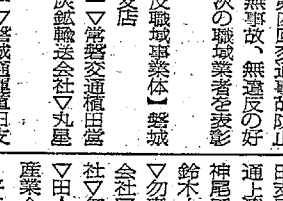 無事故、無違反の好
次の職域業者を表彰
職域事業体】磐城
支店
▽常磐交通植田営
炭鉱輸送会社▽丸
▽磐城通運植田支
通上
神尾
鈴木
▽勿
会社
社▽
▽田人
産業